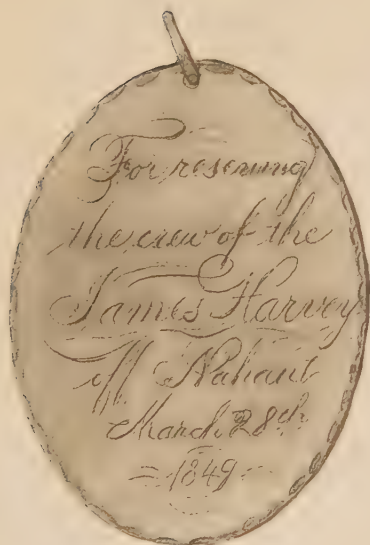 For rescuing
the crew of the
James Harvey
off Nahant
March 28th
= 1849 =